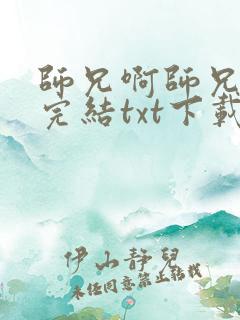 師兄啊師兄
完結txt下載
伊山靜兒
未經同意禁止轉載